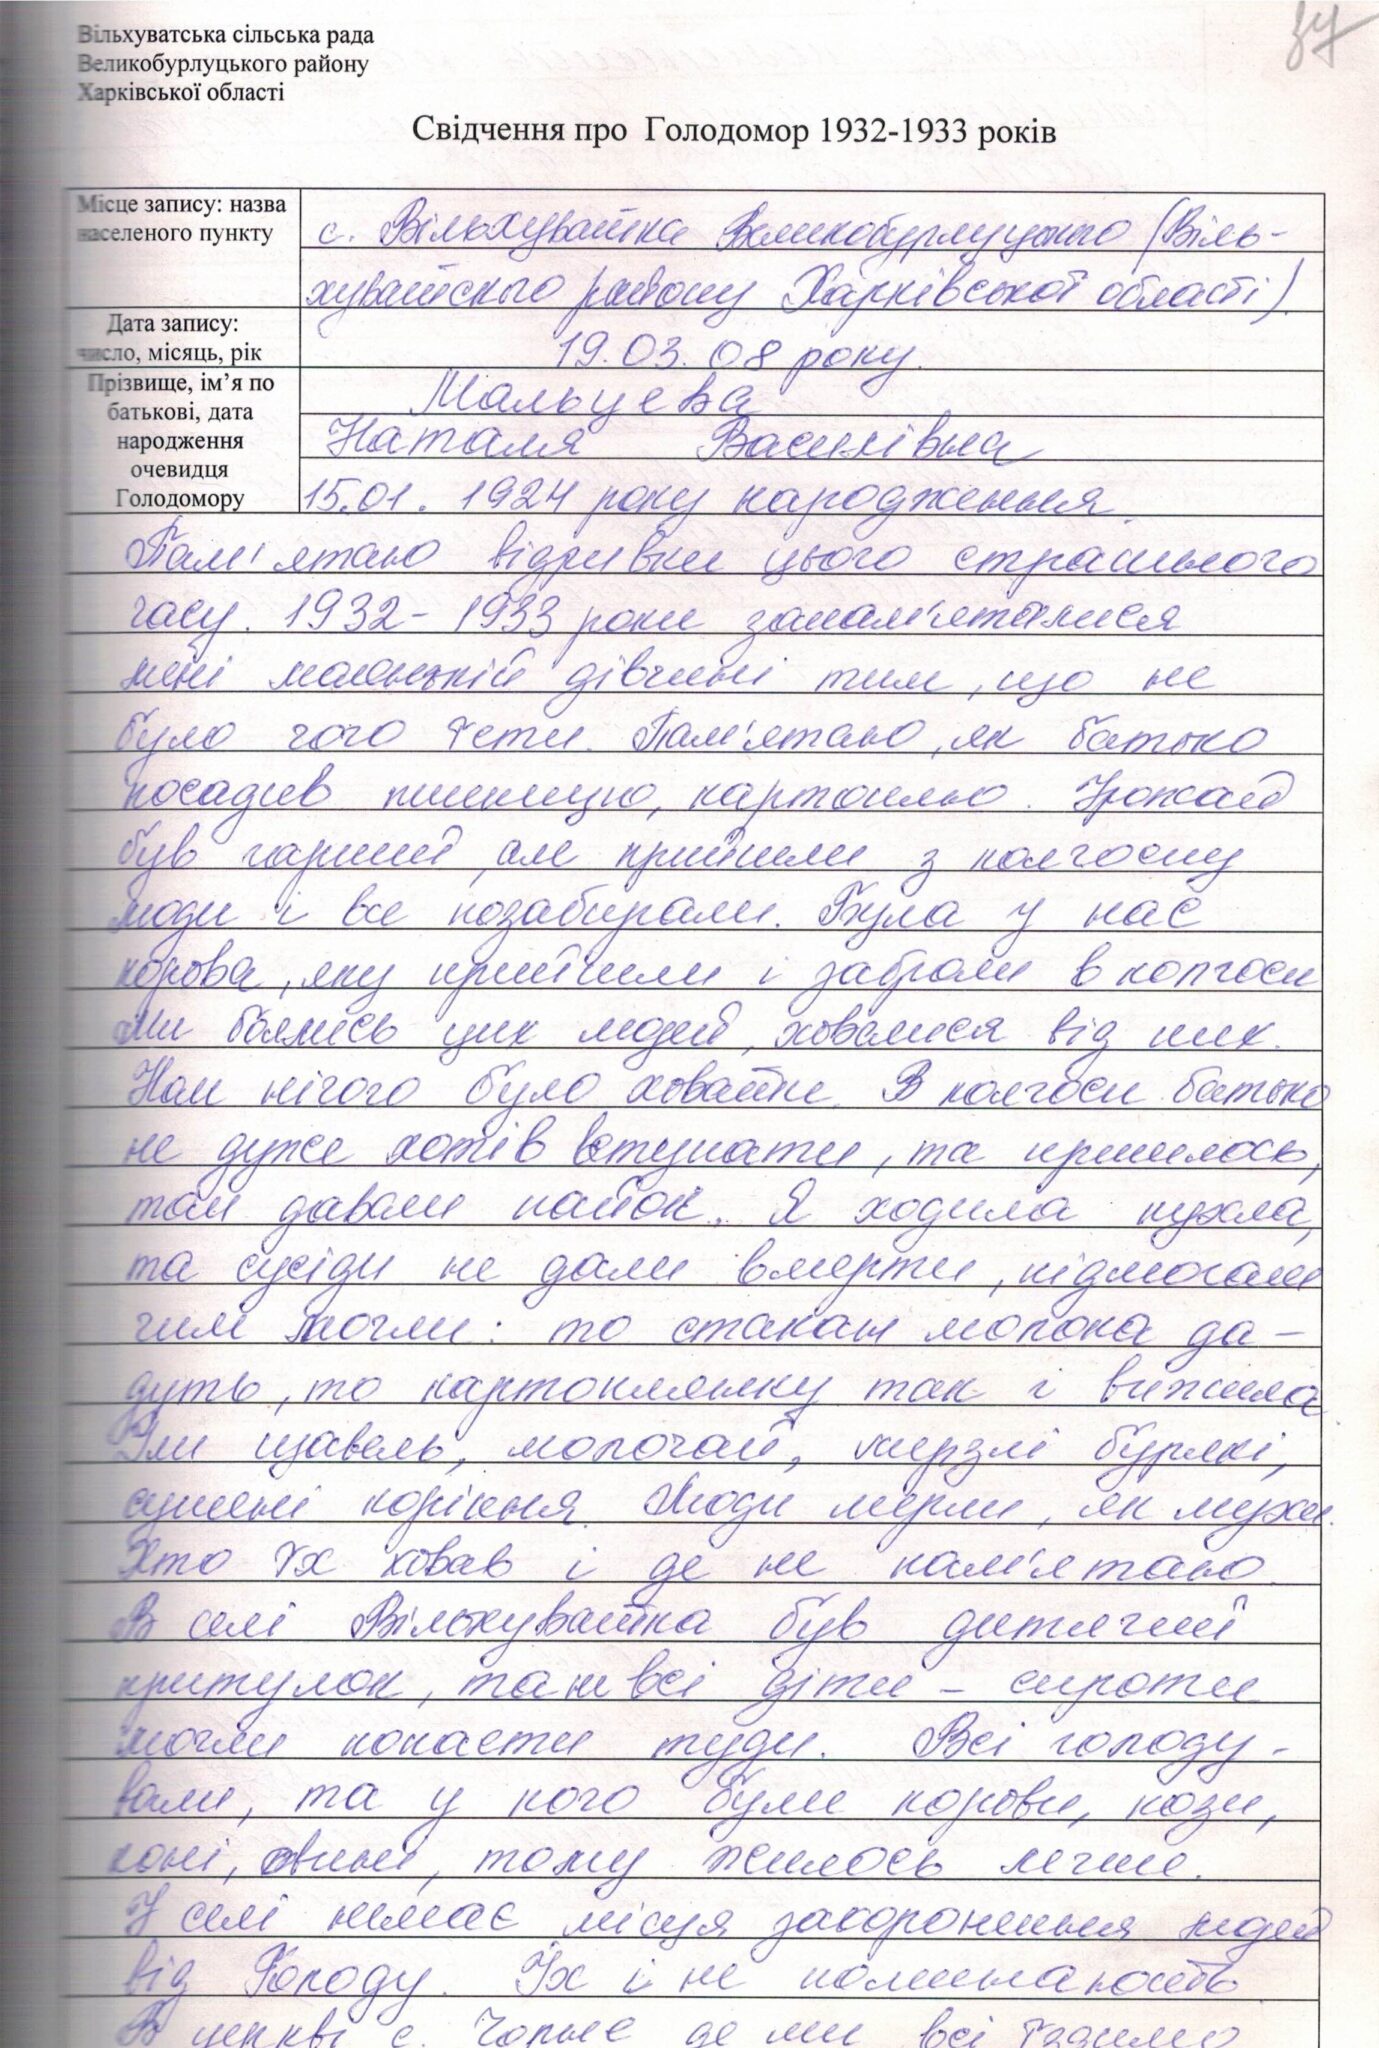 Вільхуватська сільська рада
Великобурлуцького району
Харківської області
Свідчення про Голодомор 1932-1933 років
Місце запису: назва
населеного пункту
с. Вільхуватка Великобурлуцького (Віль-
хуватського району Харківської області).
Дата запису:
число, місяць, рік
19.03.08 року.
Прізвище, ім’я по
батькові, дата
народження
очевидця
Голодомору
Мальцева
Наталя Василівна
15.01.1924 року народження.
Пам'ятаю відривки цього страшного
часу. 1932-1933 роки запам'яталися
мені маленькій дівчині тим, що не
було чого їсти. Пам'ятаю, як батько
посадив пшеницю, картоплю. Урожай
був гарний, але прийшли з колгоспу
люди і все позабирали. Була у нас
корова, яку прийшли і забрали в колгосп
Ми боялись цих людей, ховалися від них.
Нам нічого було ховати. В колгосп батько
не дуже хотів вступати, та прийшлось,
там давали пайок. Я ходила пухла,
та сусіди не дали вмерти, підмогали
чим могли: то стакан молока да-
дуть, то картоплянку так і вижила
Їли щавель, молочай, мерзлі буряки,
сушені коріння. Люди мерли, як мухи.
Хто їх ховав і де не пам'ятаю.
В селі Вільхуватка був дитячий
притулок, та не всі діти - сироти
могли попасти туди. Всі голоду-
вали, та у кого були корови, кози,
коні, свині, тому жилось легше.
У селі немає місця захоронення людей
від Голоду. Їх і не поминають.
В церкві с. де ми всі їздимо